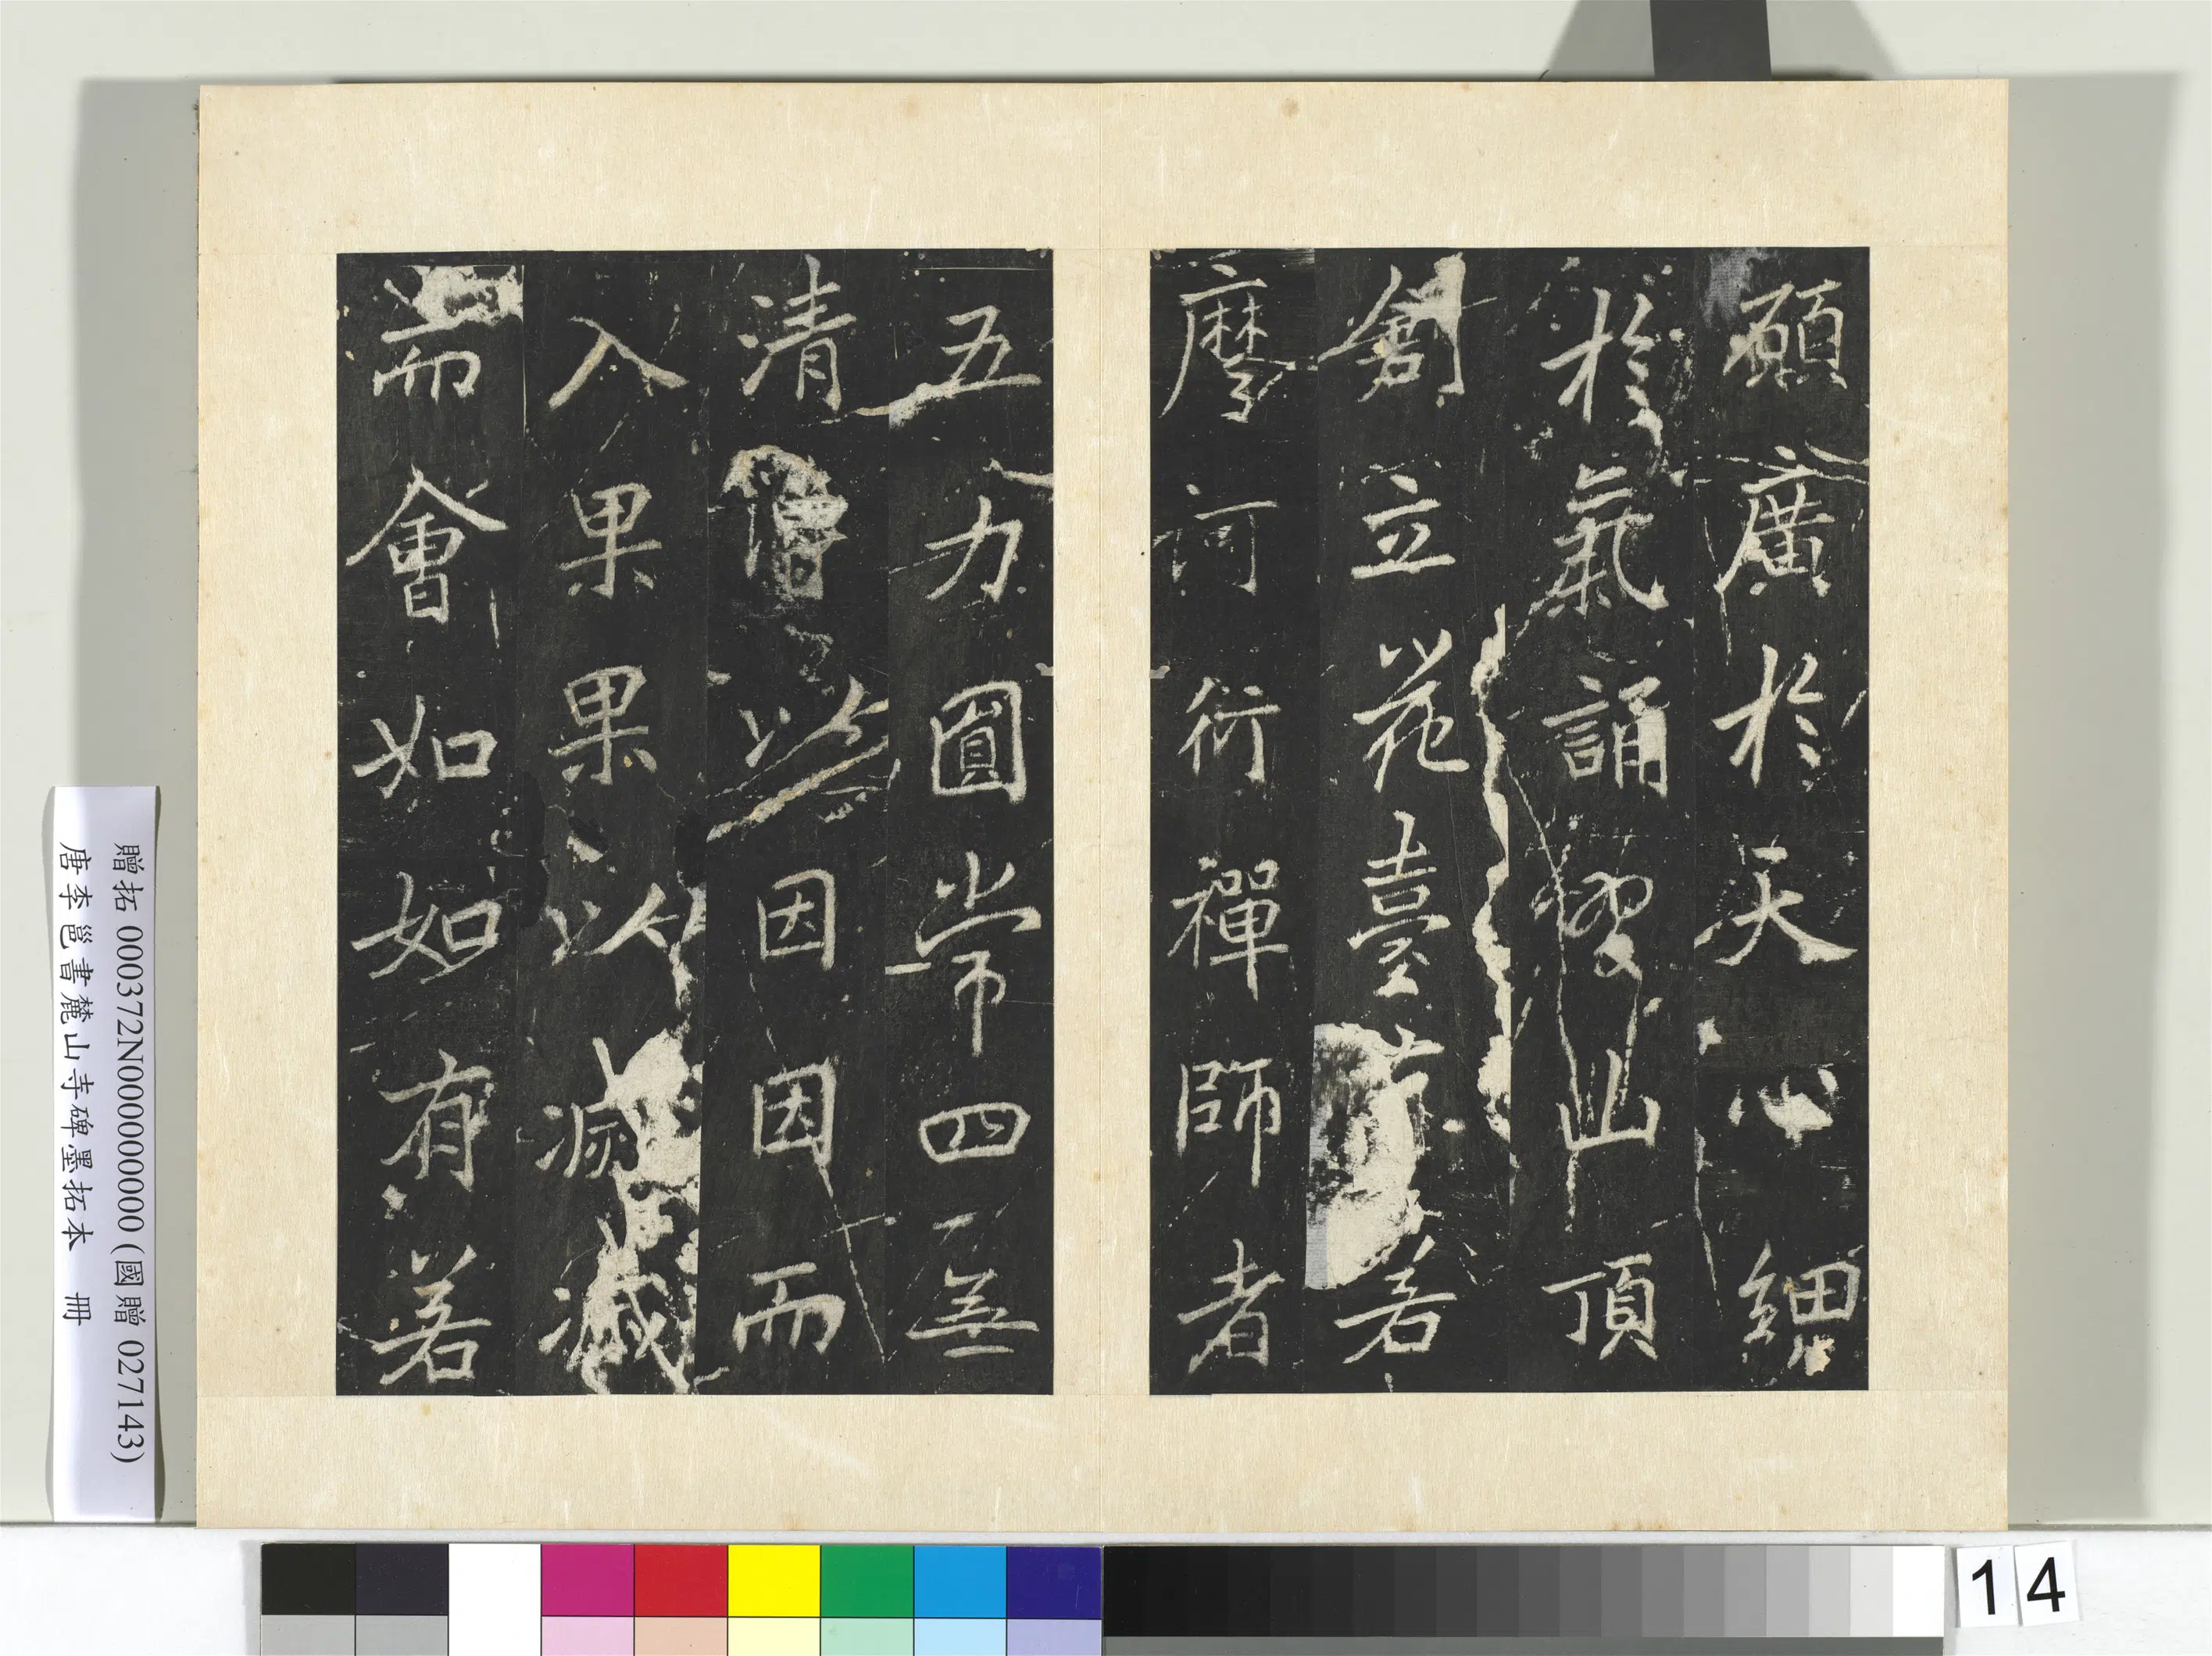 願廣於天心細
於氣誦習山頂
創立花臺有若
摩訶衍禪師者
五力圓常四無
清淨以因因而
入果果以滅滅
而會如如有若
贈拓 000372N000000000 (國贈 027143)
唐李邕書麓山寺碑墨拓本 冊
14